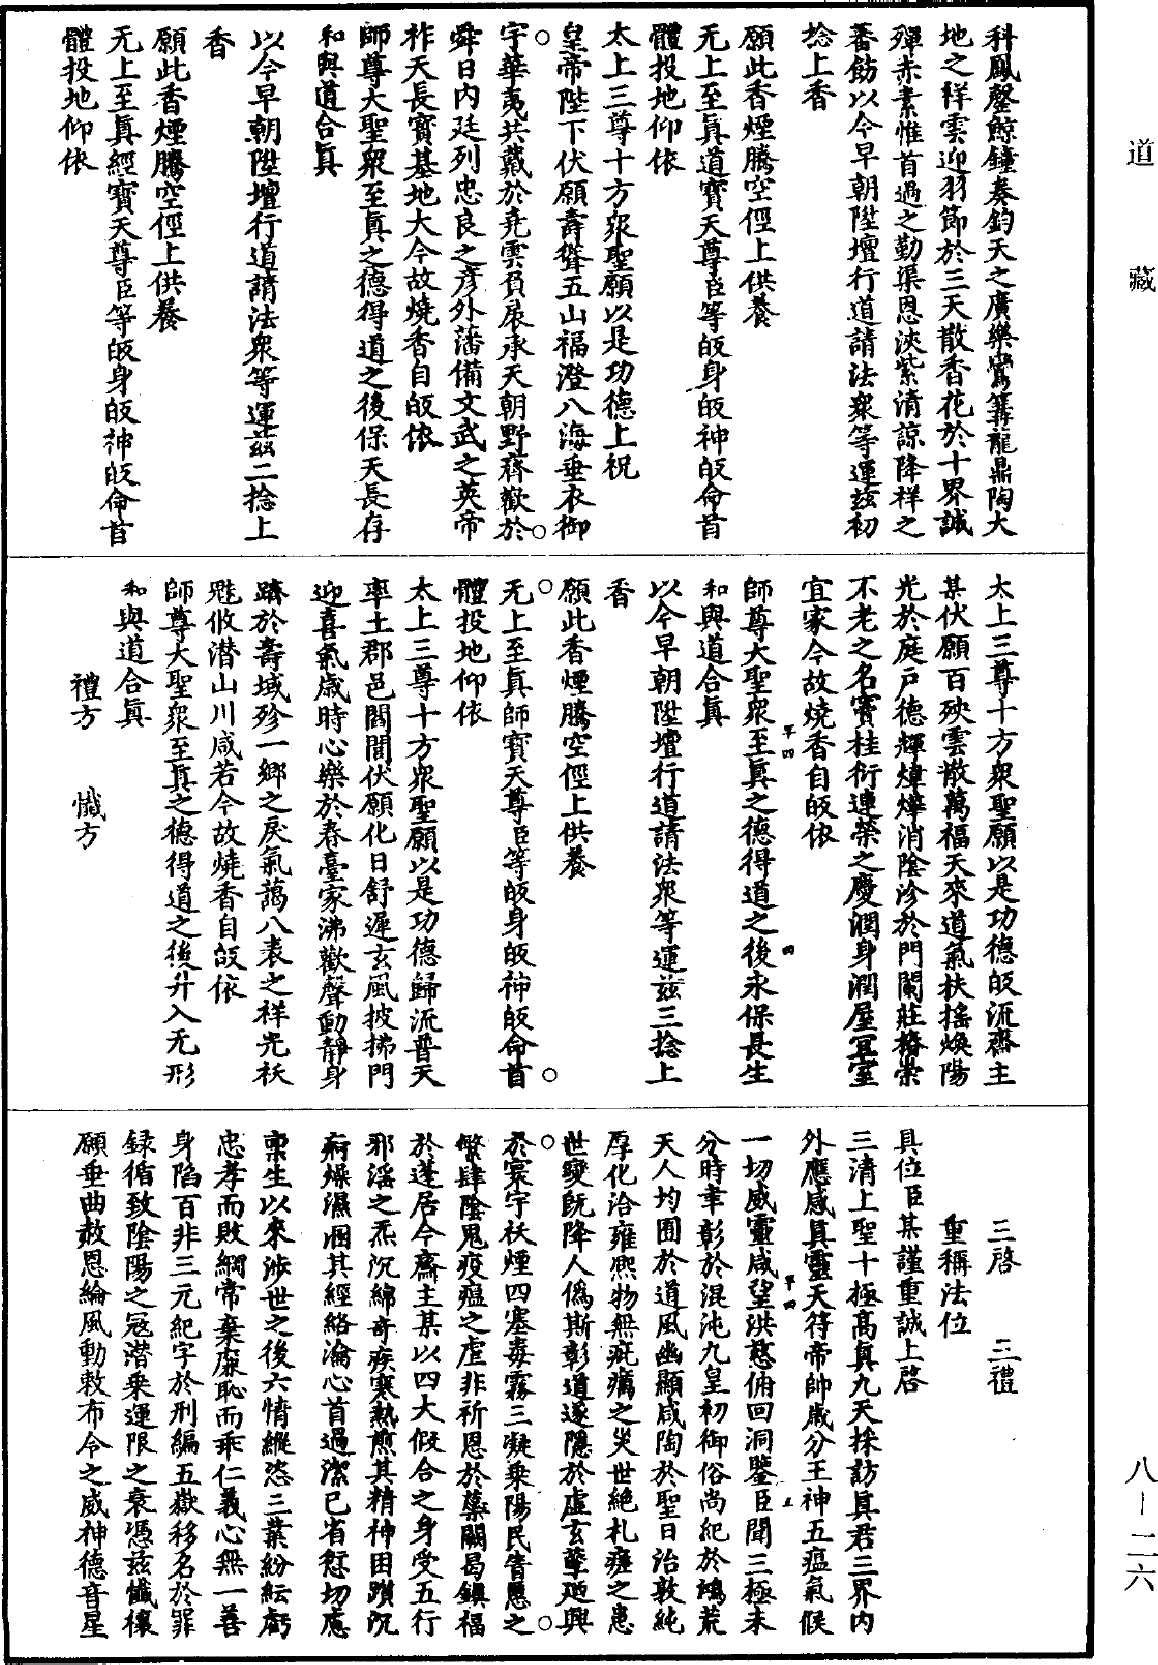 道藏
科鳳罄鯨鐘奏鈞天之廣樂鸞篝龍鼎陶大
地之祥雲迎羽節於三天散香花於十界誠
殫赤素惟首過之勤渠恩浹紫清諒降祥之
蕃飭以今早朝陞壇行道請法衆等運茲初
捻上香
願此香煙騰空徑上供養
无上至眞道寶天尊臣等皈身皈神皈命首
體投地仰依
太上三尊十方衆聖願以是功德上祝
皇帝陛下伏願壽聳五山福澄八海垂衣御
宇華夷共戴於堯雲負扆承天朝野齊歡於
舜日內廷列忠良之彦外藩備文武之英帝
祚天長寶基地大今故燒香自皈依
師尊大聖衆至眞之德得道之後保天長存
和與道合眞
以今早朝陞壇行道請法衆等運茲二捻上
香
願此香煙騰空徑上供養
无上至眞經寶天尊臣等皈身皈神皈命首
體投地仰依
太上三尊十方衆聖願以是功德皈流齋主
某伏願百殃雲散萬福天來道氣扶搖煥陽
光於庭戶德輝煒燁消陰沴於門闌莊椿崇
不老之名竇桂衍連榮之慶潤身潤屋宜室
宜家今故燒香自皈依
師尊大聖衆至眞之德得道之後永保長生
和與道合眞
以今早朝陞壇行道請法衆等運茲三捻上
香
願此香煙騰空徑上供養
无上至眞師寶天尊臣等皈身皈神皈命首
體投地仰依
太上三尊十方衆聖願以是功德歸流普天
率土郡邑閭閻伏願化日舒遲玄風披拂門
迎喜氣歲時心樂於春臺家沸歡聲動靜身
躋於壽域殄一鄉之戾氣藹八表之祥光祅
魃攸潜山川咸若今故燒香自皈依
師尊大聖衆至眞之德得道之後升入无形
和與道合眞
禮方　懺方
三啓　三禮
重稱法位
具位臣某謹重誠上啓
三清上聖十極高眞九天採訪眞君三界內
外應感眞靈天符帝帥歲分王神五瘟氣候
一切威靈咸望洪慈俯回洞鑒臣聞三極未
分時聿彰於混沌九皇初御俗尚紀於鴻荒
天人均囿於道風幽顯咸陶於聖日治敦純
厚化洽雍熙物無疵癘之災世絶札瘥之患
世變旣降人僞斯彰道遂隱於虛玄孽迺興
於寰宇祅煙四塞毒霧三凝乗陽民眚慝之
繁肆陰鬼疫瘟之虐非祈恩於蘂闕曷鎮福
於蓬居今齋主某以四大假合之身受五行
邪淫之炁沉綿奇疾寒熱煎其精神困躓沉
痾燥濕梱其經絡瀹心首過潔已省愆切慮
稟生以來涉世之後六情縱恣三業紛紜虧
忠孝而敗綱常棄廉恥而乖仁義心無一善
身陷百非三元紀字於刑編五嶽移名於罪
録循致陰陽之冦潜乗運限之衰憑茲懺禳
願垂曲赦恩綸風動敕布令之威神德音星
八—二六